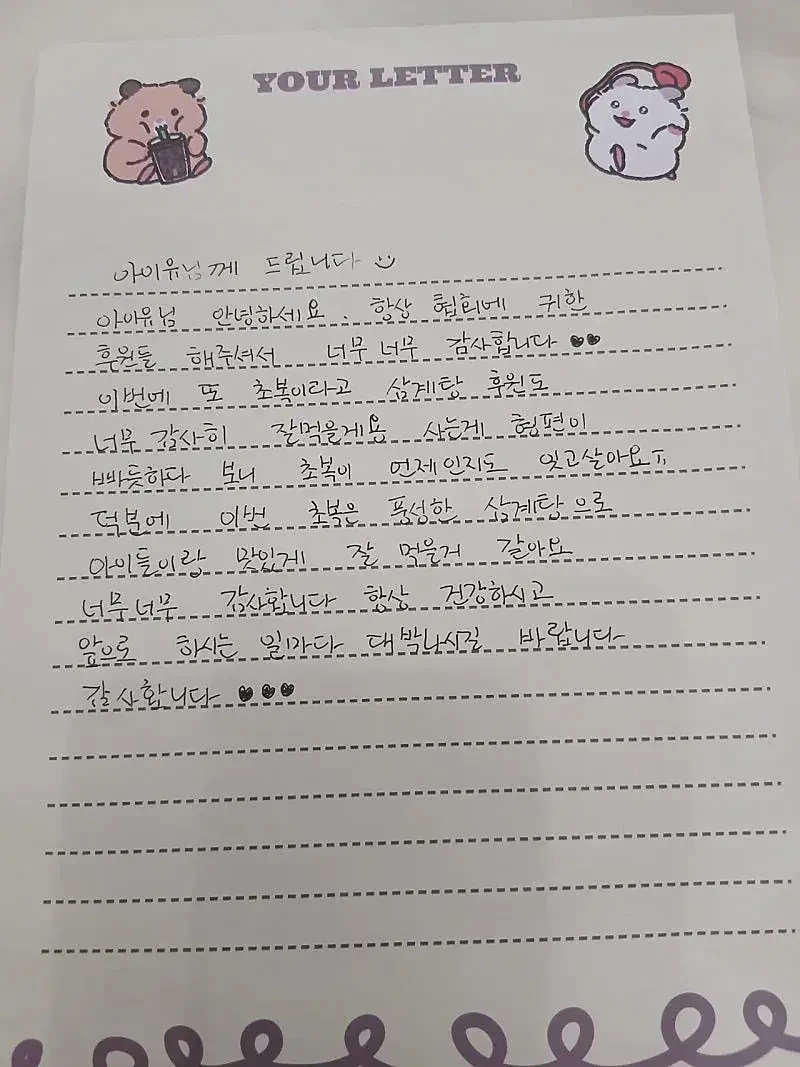 YOUR LETTER
아이유님께 드립니다
아이유님 안녕하세요. 항상 협회에 귀한
후원들 해주셔서 너무 너무 감사합니다 ♥♥
이번에 또 초복이라고 삼계탕 후원도
너무 감사히 잘먹을게용 사는게 형편이
빠듯하다 보니 초복이 언제인지도 잊고살아요ㅠ
덕분에 이번 초복은 풍성한 삼계탕으로
아이들이랑 맛있게 잘 먹을거 같아요
너무너무 감사합니다 항상 건강하시고
앞으로 하시는 일마다 대박나시길 바랍니다
감사합니다 ♥♥♥